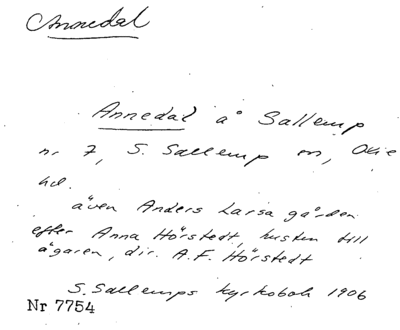 Annedal
Annedal å Sallerup
nr 7, S. Sallerup sn, Oxie
hd.
även Anders Larsagården
efter Anna Hörstedt, hustru till
ägaren, dir. A.F. Hörstedt
S. Sallerups kyrkobok 1906
Nr 7754